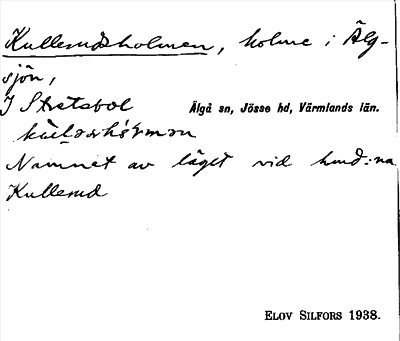 Kullerudsholmen, holme i Älg-
sjön,
I Stretsbol Älgå sn, Jösse hd, Värmlands län.
Namnet av läget vid hmd:na
Kullerud
ELOV SILFORS 1938.